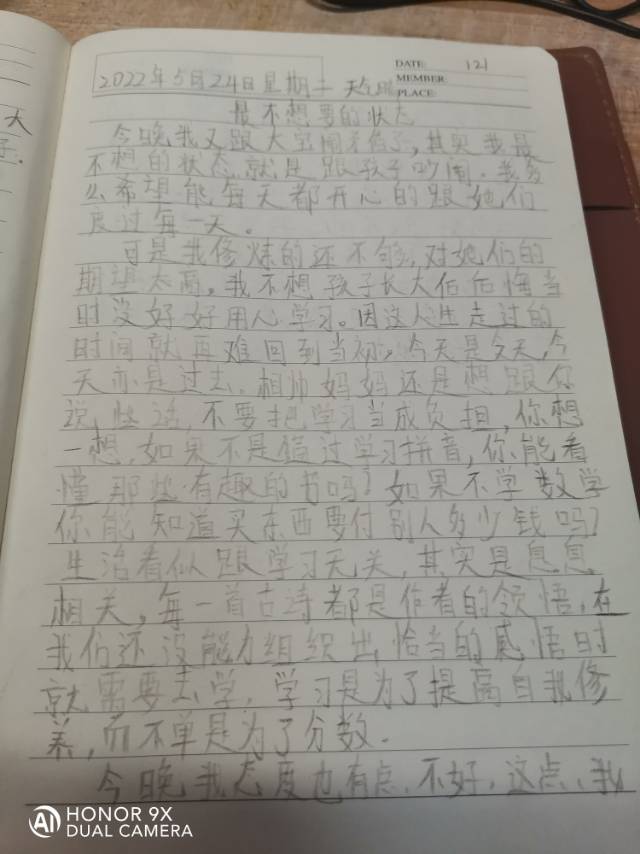 大
子.
DATE: 121
MEMBER:
PLACE:
2022年5月24日 星期二 天气:
最不想要的状态
今晚我又跟大宝闹矛盾了,其实我最
不想的状态就是跟孩子吵闹。我多
么希望能每天都开心的跟她们
度过每一天。
可是我修炼的还不够,对她们的
期望太高,我不想孩子长大后后悔当
时没好好用心学习。因这人生走过的
时间就再难回到当初。今天是今天,今
天亦是过去.相帅妈妈还是想跟你
说,怪话,不要把学习当成负担,你想
一想,如果不是通过学习拼音,你能看
懂那些有趣的书吗?如果不学数学
你能知道买东西要付别人多少钱吗?
生活看似跟学习无关,其实是息息
相关,每一首古诗都是作者的领悟,在
我们还没能力组织出恰当的感悟时
就需要去学,学习是为了提高自我修
养,而不单是为了分数.
今晚我态度也有点不好,这点,我
HONOR 9X
DUAL CAMERA